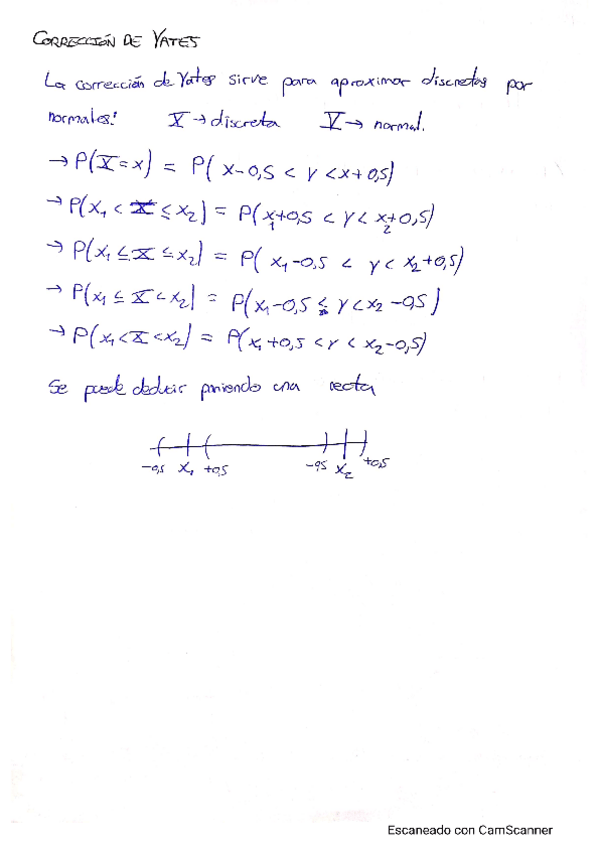 CORRECCIÓN DE YATES
La corrección de Yates sirve para aproximar discretas por
normales: X → discreta Y → normal.
→ P(X = x) = P( x-0,5 < Y < x+0,5)
→ P(x₁ < X ≤ x₂) = P(x₁+0,5 < Y < x₂+0,5)
→ P(x₁ ≤ X ≤ x₂) = P( x₁-0,5 < Y < x₂+0,5)
→ P(x₁ ≤ X < x₂) = P(x₁-0,5 ≤ Y < x₂-0,5)
→ P(x₁ < X < x₂) = P(x₁+0,5 < Y < x₂-0,5)
Se puede deducir poniendo una recta
-0,5 x₁ +0,5 -0,5 x₂ +0,5
Escaneado con CamScanner